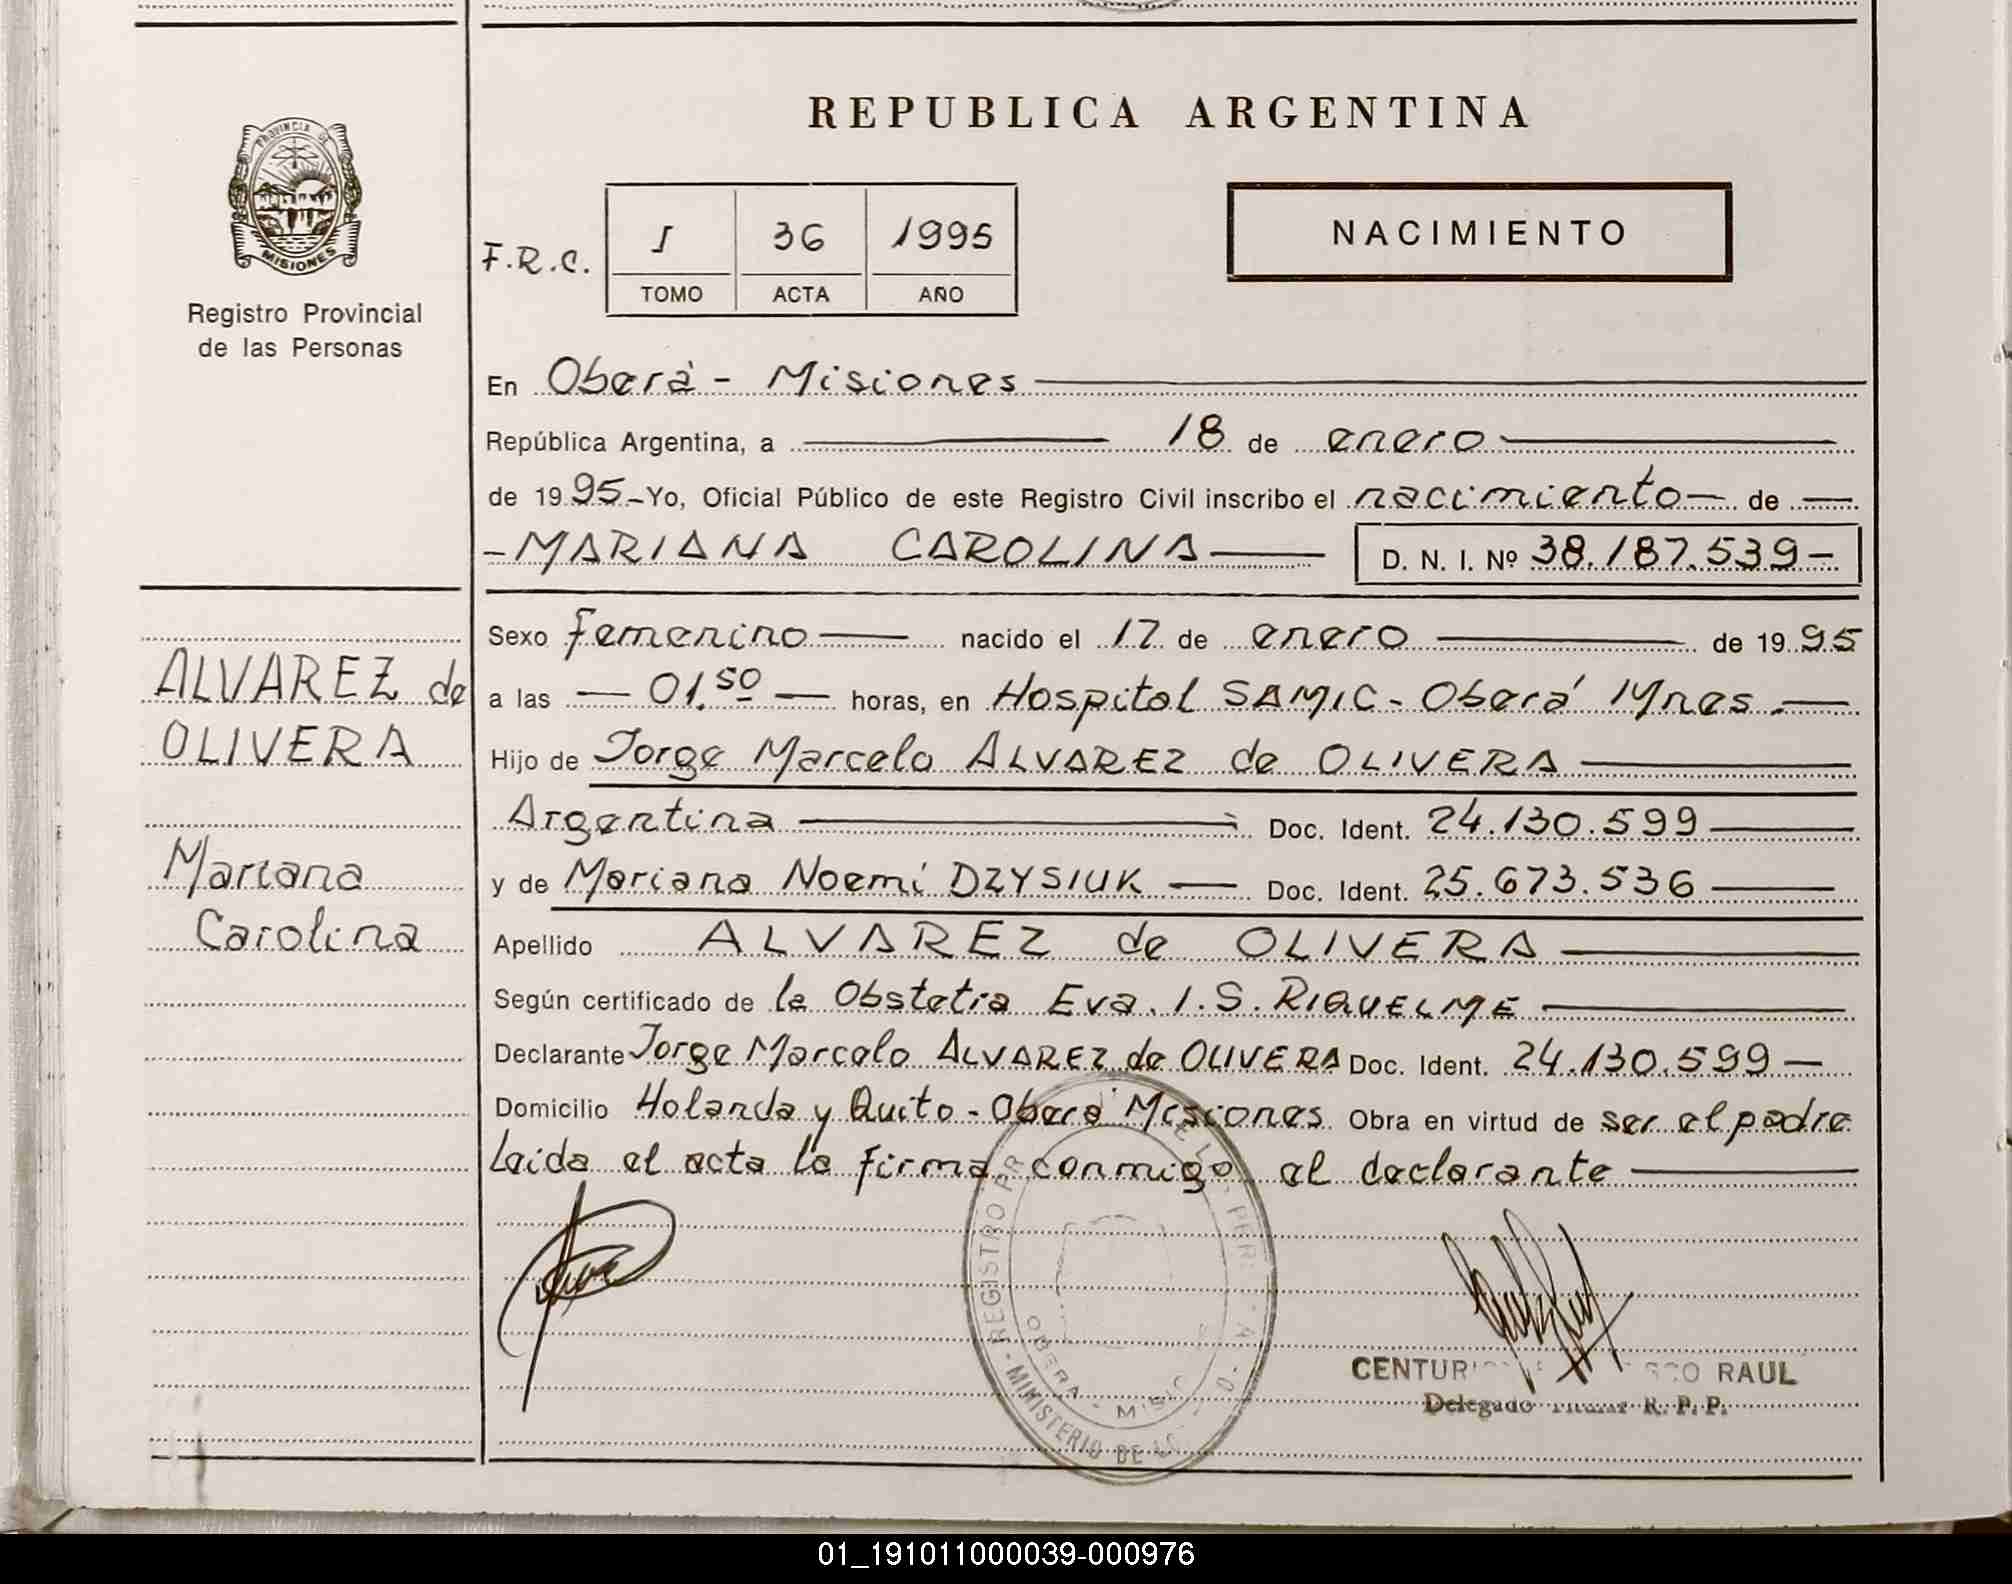 REPUBLICA ARGENTINA
PROVINCIA DE
MISIONES
Registro Provincial
de las Personas
F.R.C.
I 36 1995
TOMO ACTA AÑO
NACIMIENTO
En Oberá - Misiones
República Argentina, a 18 de enero
de 1995 - Yo, Oficial Público de este Registro Civil inscribo el nacimiento de
- MARIANA CAROLINA D. N. I. Nº 38.187.539 -
Sexo femenino nacido el 17 de enero de 1995
a las 01.50 horas, en Hospital SAMIC - Oberá Mnes.
Hijo de Jorge Marcelo ALVAREZ de OLIVERA
Argentina Doc. Ident. 24.130.599
y de Mariana Noemí DZYSIUK Doc. Ident. 25.673.536
Apellido ALVAREZ de OLIVERA
Según certificado de la Obstetra Eva. I. S. RIQUELME
Declarante Jorge Marcelo ALVAREZ de OLIVERA Doc. Ident. 24.130.599
Domicilio Holanda y Quito - Oberá Misiones Obra en virtud de ser el padre
Leida el acta la firma conmigo el declarante
ALVAREZ de
OLIVERA
Mariana
Carolina
REGISTRO PR
MINISTERIO DE
OBERA - MISIO
CENTURI RAUL
Delegado Titular R. P. P.
01_191011000039-000976